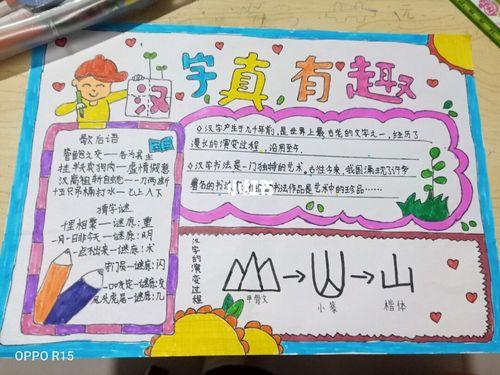 汉字真有趣
歇后语
管鲍之交——各为其主
挂羊头卖狗肉——虚情假意
汉高祖斩白蛇——一刀两断
十五只吊桶打水——七上八下
猜字谜
千里相聚——谜底:重
一月一日非今天——谜底:明
一点水出来——谜底:术
打门员——谜底:闪
谜底:几
汉字产生于几千年前,是世界上最古老的文字之一,经历了
漫长的演变过程,沿用至今。
汉字书法是一门独特的艺术。古往今来,我国涌现了许多
著名的书法
书法作品是艺术中的珍品……
汉字的演变过程
甲骨文
小篆
山
楷体
OPPO R15